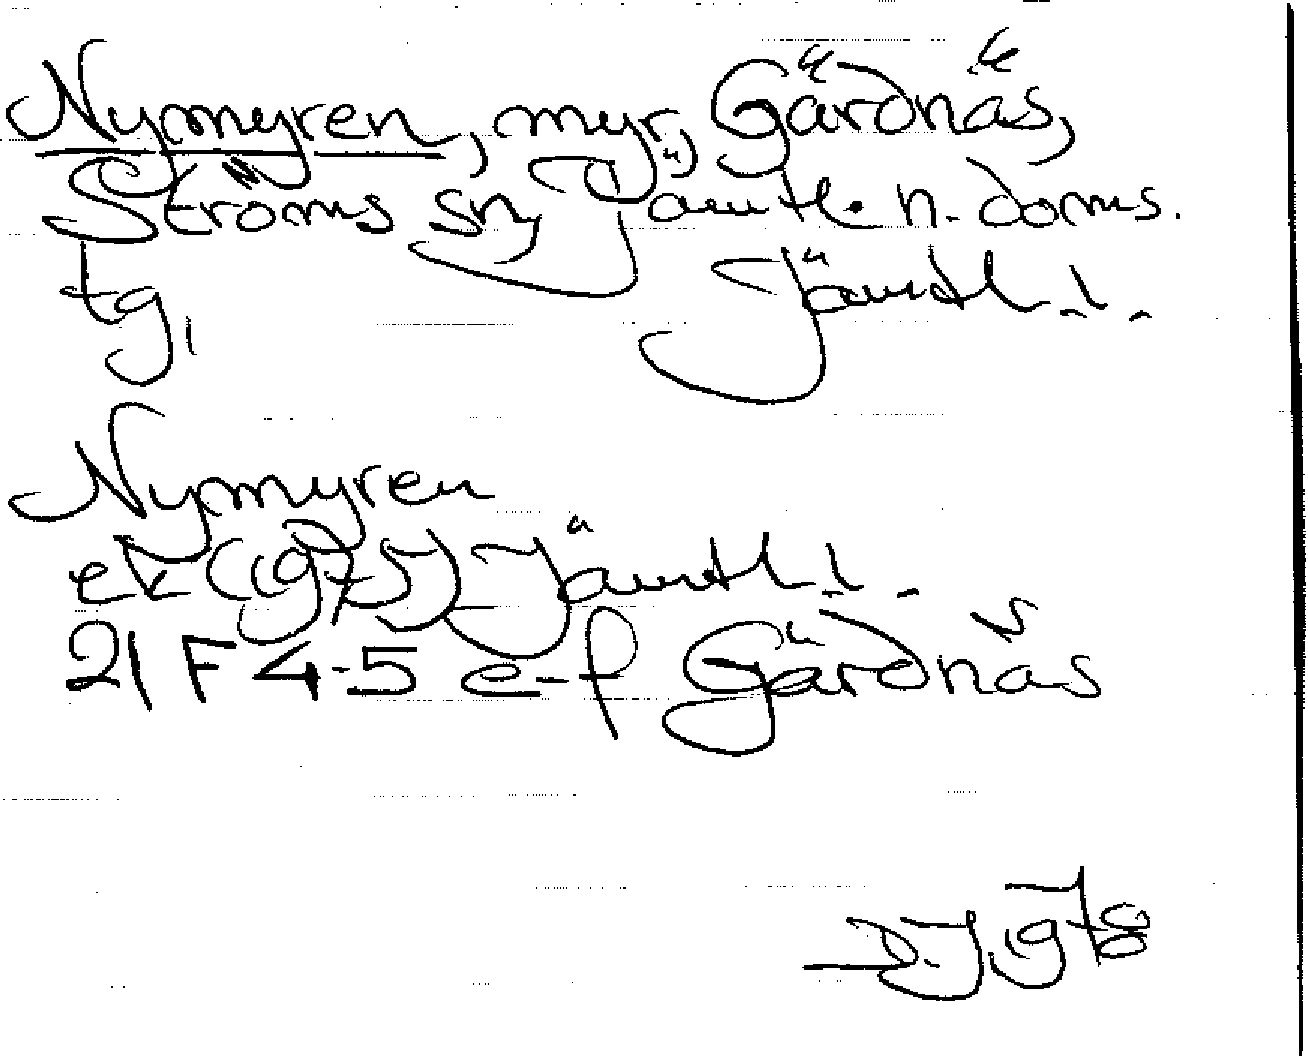 Nymyren, myr, Gärdnäs,
Ströms sn, Jämtl. n. doms.
tg, Jämtl. l.
Nymyren
ek (1975) Jämtl. l.
21 F 4-5 e-f Gärdnäs